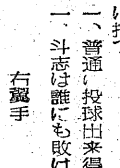 に投
一、普通に投球出来得
一、斗志は誰にも敗け
右翼手